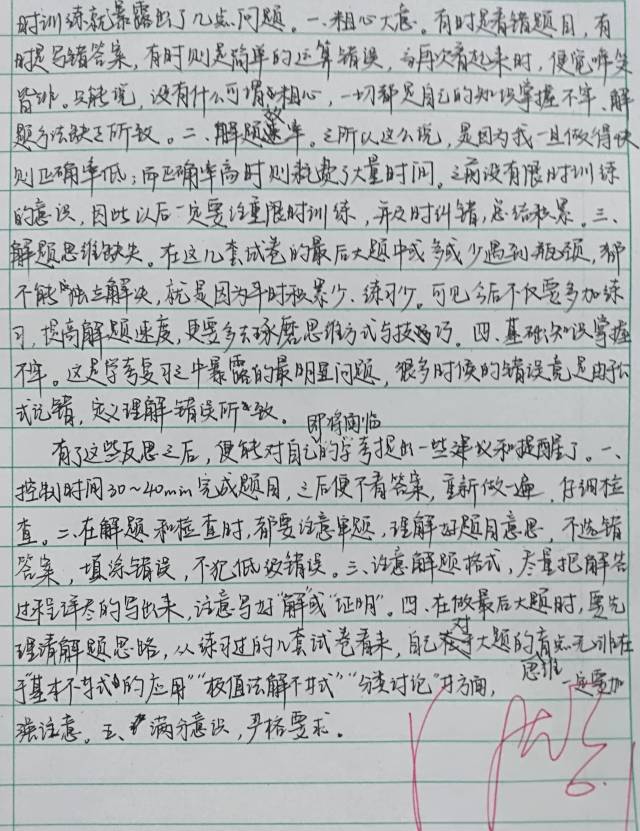 时训练就暴露出了几点问题。一、粗心大意。有时是看错题目,有
时是写错答案,有时则是简单的运算错误,每再次看起来时,便觉啼笑
皆非。只能说,没有什么可谓粗心,一切都是自己的知识掌握不牢、解
题方法缺乏所致。二、解题速率。之所以这么说,是因为我一旦做得快
则正确率低;而正确率高时则耗费了大量时间。之前没有限时训练
的意识,因此以后一定要注重限时训练,并及时纠错,总结积累。三、
解题思维缺失。在这几套试卷的最后大题中或多或少遇到瓶颈,都
不能独立解决,就是因为平时积累少、练习少。可见今后不仅要多加练
习,提高解题速度,更要多去琢磨思维方式与技巧。四、基础知识掌握
不牢。这是学考复习之中暴露的最明显问题,很多时候的错误竟是由于公
式记错,定义理解错误所致。
有了这些反思之后,便能对自己的即将面临学考提出一些建议和提醒了。一、
控制时间30~40min完成题目,之后便不看答案,重新做一遍,仔细检
查。二、在解题和检查时,都要注意审题,理解好题目意思,不选错
答案,填涂错误,不犯低级错误。三、注意解题格式,尽量把解答
过程详尽的写出来,注意写好“解”或“证明”。四、在做最后大题时,要先
理清解题思路,从练习过的几套试卷看来,自己对于大题的盲点无非在
于“基本不等式的应用”“极值法解不等式”“分类讨论”等方面,思维一定要加
强注意。五、满分意识,严格要求。